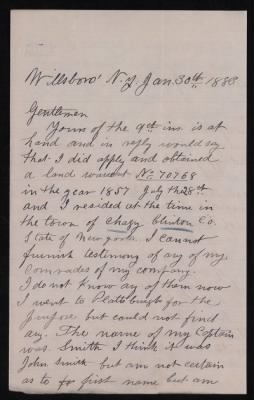 Willsboro' N.Y. Jan 30th 1888
Gentlemen
Yours of the 9th ins. is at
hand and in reply would say
that I did apply and obtained
a land warrent No 70768
in the year 1857 July the 28th
and I resided at the time in
the town of Chazy Clinton Co.
State of New york. I cannot
furnish testimony of any of my
Comrades of my company.
I do not know any of them now
I went to Plattsburgh for the
purpose but could not find
any. The name of my Captain
was Smith I think it was
John Smith but am not certain
as to for first name but am